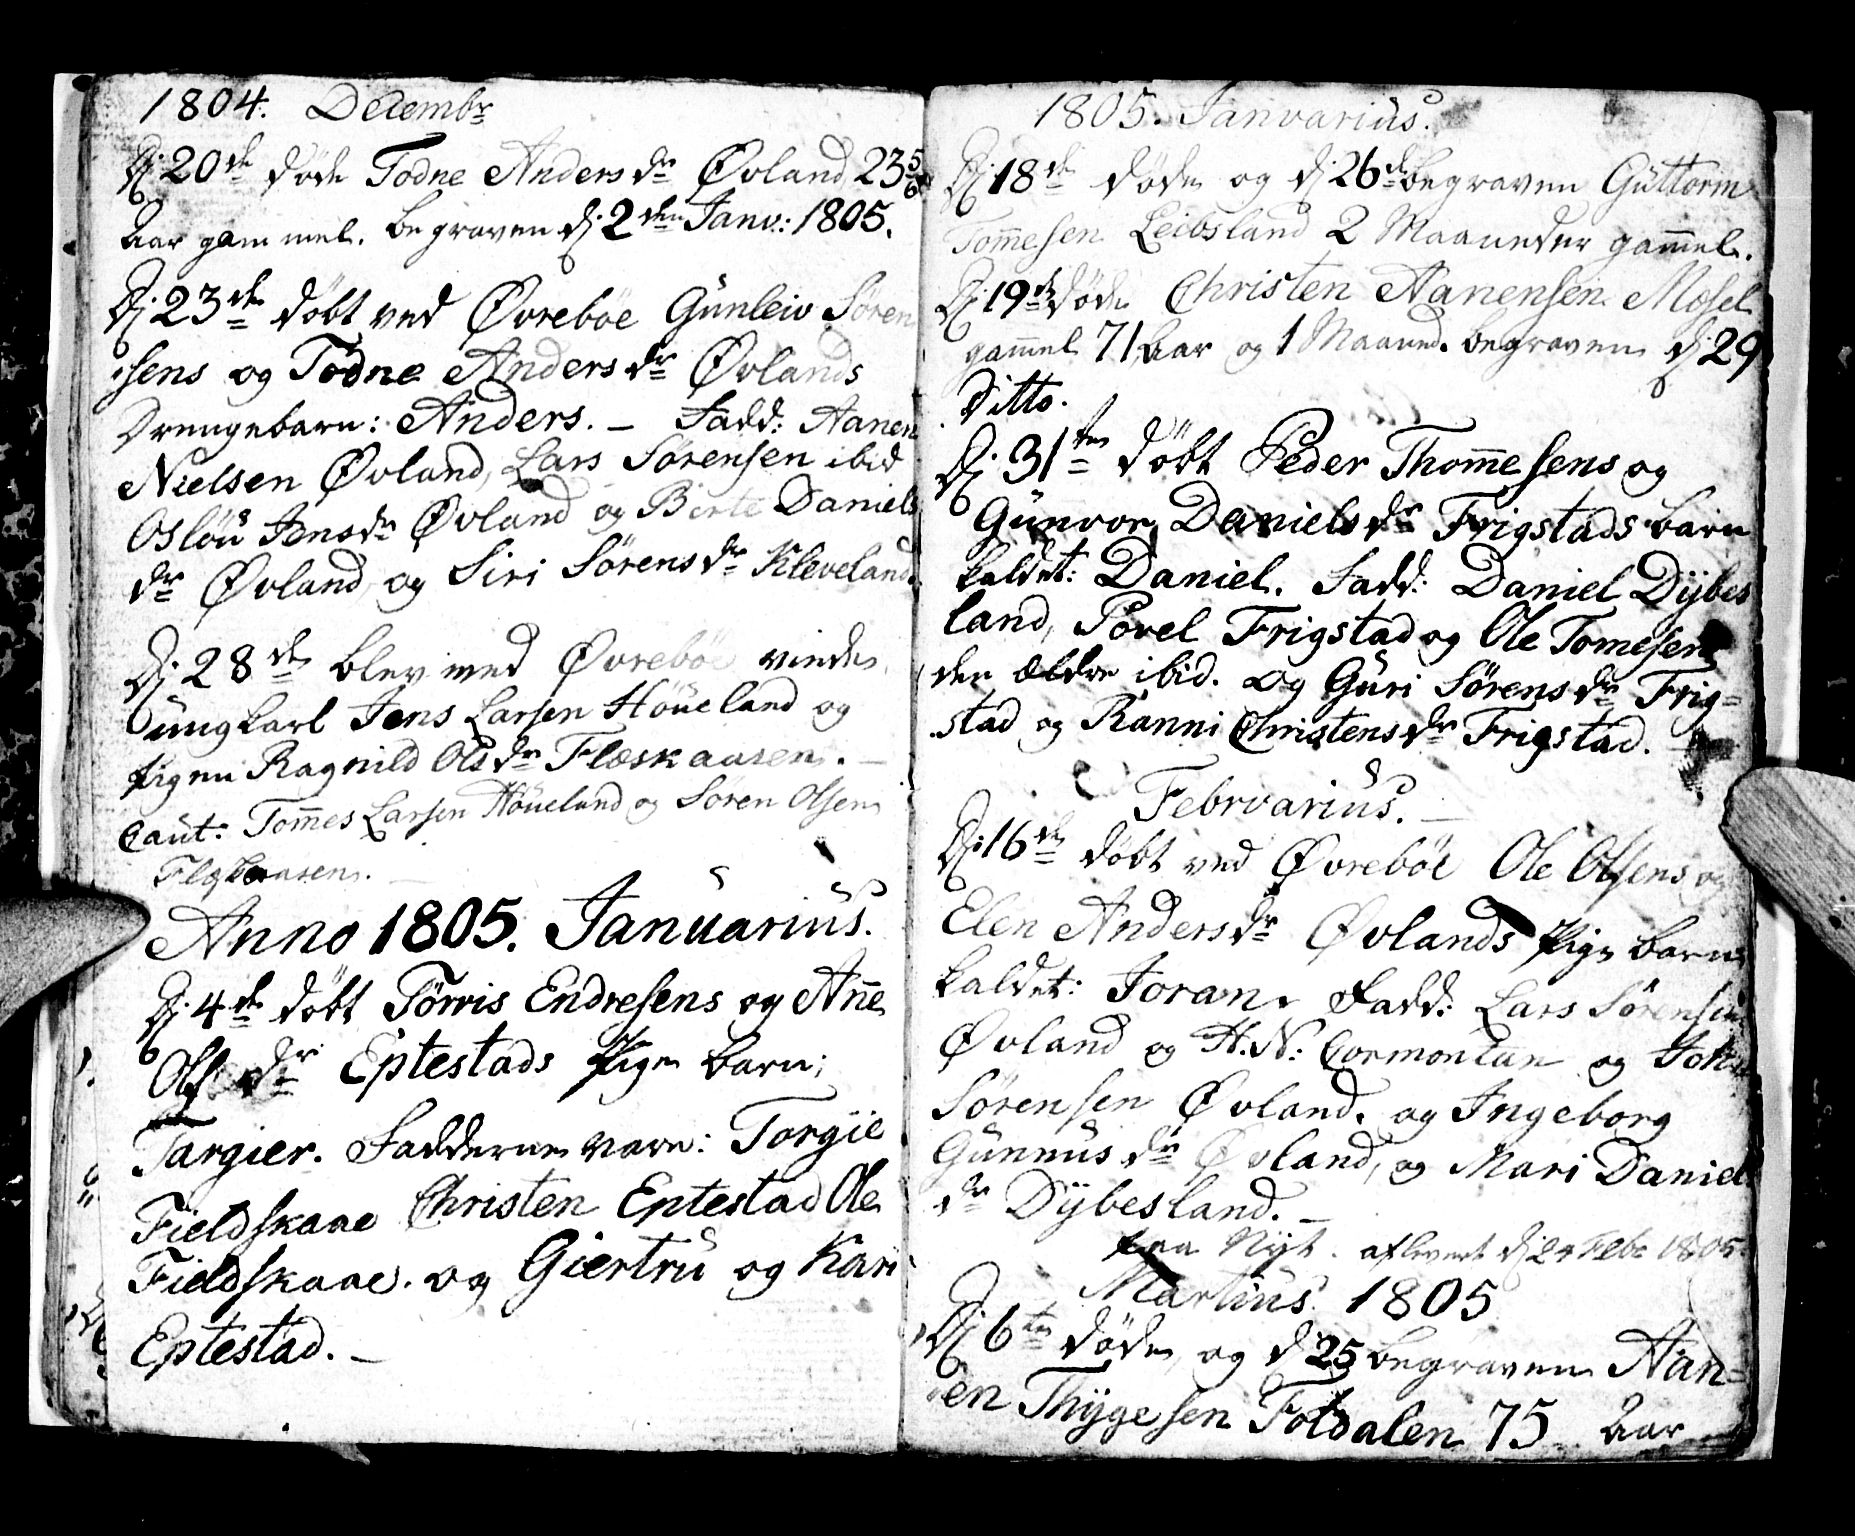 1804. Decembr
Dj 20de døde Todne Andersdr Øvland, 23 5/6
Aar gammel. begraven dj 2den Janv: 1805.
Dj 23de døbt ved Øvrebøe Gunleiv Søren
sens og Todne Andersdr Øvlands
Drengebarn: Anders. – Fadd: Aanen
Nielsen Øvland, Lars Sørensen ibid
Osløu Jensdr Øvland og Birte Daniels
dr Øvland, og Siri Sørensdr Kleveland.
Dj 28de blev ved Øvrebøe viede
ungkarl Jens Larsen Høueland og
Pigen Ragnild Olsdr Fleskaasen. –
Caut: Tom̄es Larsen Høueland og Søren Olsen
Fleskaasen. –
Anno 1805. Januarius.
Dj 4de døbt Tørris Endresens og An̄e
Olsdr Eptestads Pige barn;
Targier. Fadderne vare: Torgie
Fieldskaae Christen Eptestad Ole
Fieldskaae. og Giertru og Kari
Eptestad. –
1805. Janvarius.
Dj 18de døde og dj 26de begraven Guttorm
Tom̄esen Leibsland 2 Maaneder gam̄el.
Dj 19de døde Christen Aanensen Mosel
gam̄el 71 Aar og 1 Maaned. begraven dj 29
Ditto.
Dj 31te døbt Peder Thom̄esens og
Gunvor Danielsdr Frigstads barn
kaldet: Daniel. Fadd: Daniel Dÿbes
land, Povel Frigstad og Ole Tomesen
den ældre ibid. og Guri Sørensdr Frig=
stad og Ranni Christensdr Frigstad. –
Febrvarius. –
Dj 16de døbt ved Øvrebøe Ole Olsens og
Elen Andersdr Øvlands Pige barn
kaldet: Joran. Fadd: Lars Sørensen
Øvland og H. N: Cormontan og John
Sørensen Øvland. og Ingeborg
Gunnusdr Øvland, og Mari Daniels
dr Dÿbesland. –
fra Nyt. aflevert dj 24 Febr 1805
Martius 1805
Dj 6te døde, og dj 25 begraven Aan=
en Thÿgesen Fotdalen 75 Aar